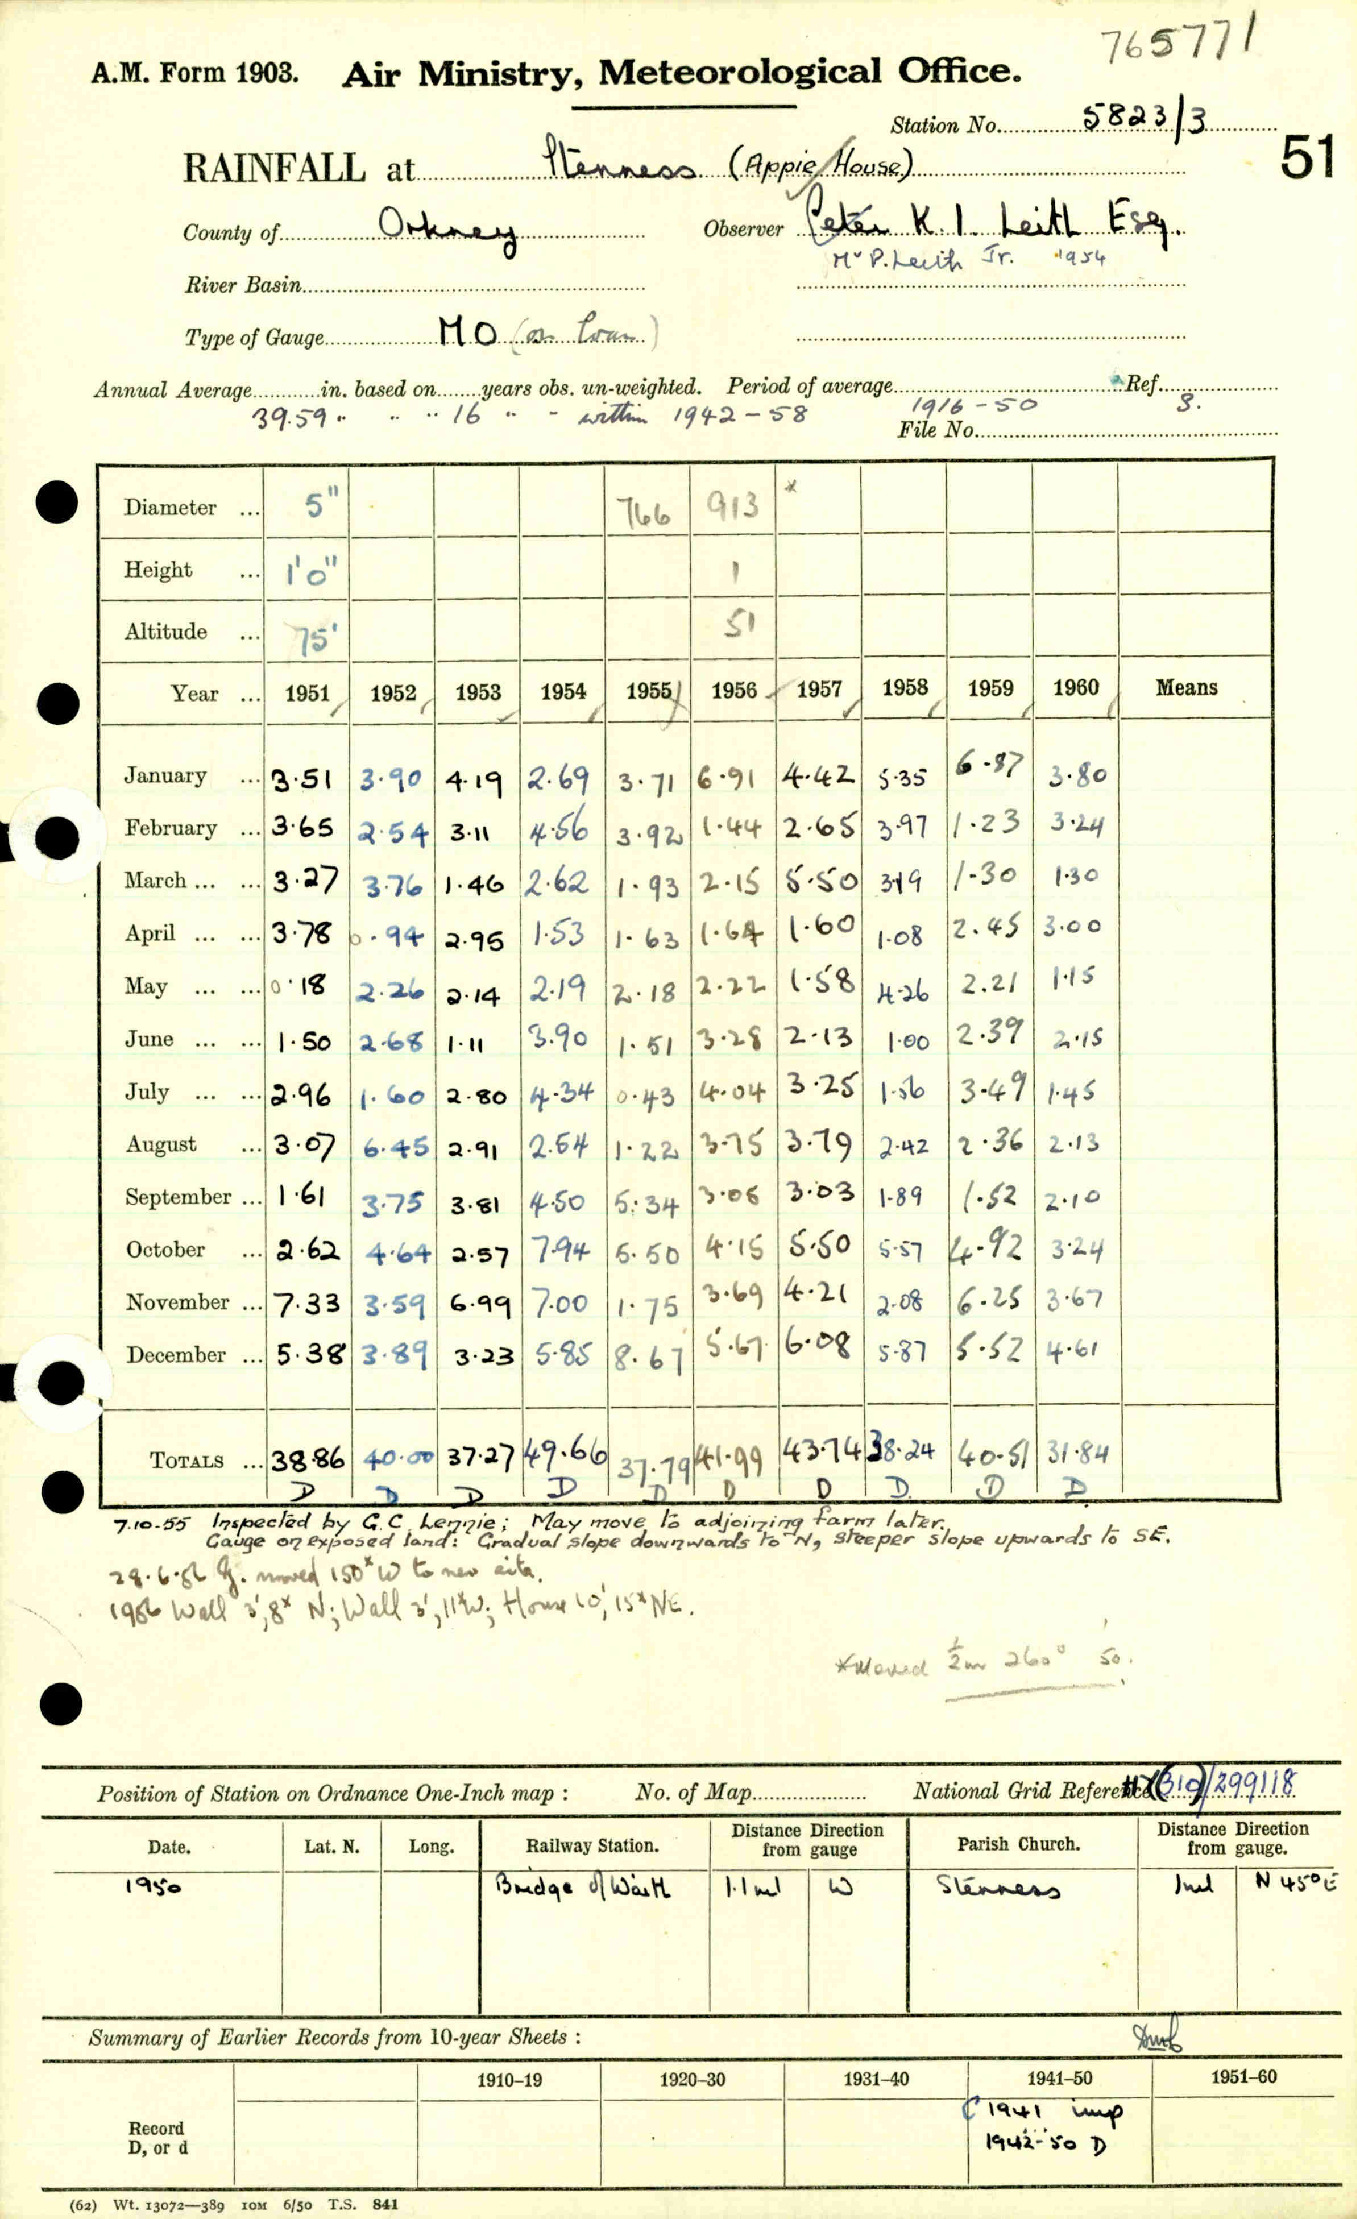 765771
A.M. Form 1903. Air Ministry, Meteorological Office.
Station No. 5823/3
51
RAINFALL at Stenness (Appie House)
County of Orkney Observer Peter K. I. Leith Esq.
Mr P. Leith Jr. 1954
River Basin
Type of Gauge MO (on loan)
Annual Average in. based on years obs. un-weighted. Period of average Ref.
39.59 " " " 16 " - within 1942-58 1916-50 S.
File No.
Diameter ... 5" 766 913 *
Height ... 1'0" 1
Altitude ... 75' 51
Year ... 1951 1952 1953 1954 1955 1956 1957 1958 1959 1960 Means
January ... 3.51 3.90 4.19 2.69 3.71 6.91 4.42 5.35 6.87 3.80
February ... 3.65 2.54 3.11 4.56 3.92 1.44 2.65 3.97 1.23 3.24
March ... ... 3.27 3.76 1.46 2.62 1.93 2.15 5.50 3.19 1.30 1.30
April ... ... 3.78 0.94 2.95 1.53 1.63 1.64 1.60 1.08 2.45 3.00
May ... ... 0.18 2.26 2.14 2.19 2.18 2.22 1.58 4.26 2.21 1.15
June ... ... 1.50 2.68 1.11 3.90 1.51 3.28 2.13 1.00 2.39 2.15
July ... ... 2.96 1.60 2.80 4.34 0.43 4.04 3.25 1.56 3.49 1.45
August ... 3.07 6.45 2.91 2.54 1.22 3.75 3.79 2.42 2.36 2.13
September ... 1.61 3.75 3.81 4.50 5.34 3.05 3.03 1.89 1.52 2.10
October ... 2.62 4.64 2.57 7.94 5.50 4.15 5.50 5.57 4.92 3.24
November ... 7.33 3.59 6.99 7.00 1.75 3.69 4.21 2.08 6.25 3.67
December ... 5.38 3.89 3.23 5.85 8.67 5.67 6.08 5.87 5.52 4.61
TOTALS ... 38.86 40.00 37.27 49.66 37.79 41.99 43.74 38.24 40.51 31.84
D D D D D D D D D D
7.10.55 Inspected by G.C. Lennie; May move to adjoining farm later.
Gauge on exposed land: Gradual slope downwards to N, steeper slope upwards to SE.
28.6.56 G. moved 150x W to new site.
1956 Wall 3', 8x N; Wall 3', 11x W; House 10', 15x NE.
*Moved ½m 260° 50'.
Position of Station on Ordnance One-Inch map : No. of Map National Grid Reference HY(310)/299118
Date. Lat. N. Long. Railway Station. Distance Direction from gauge Parish Church. Distance Direction from gauge.
1950 Bridge of Waith 1.1 ml W Stenness 1 ml N 45° E
Summary of Earlier Records from 10-year Sheets :
1910–19 1920–30 1931–40 1941–50 1951–60
Record D, or d
C 1941 imp
1942-50 D
(62) Wt. 13072—389 10M 6/50 T.S. 841